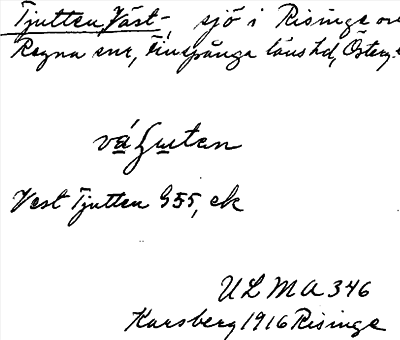 Tjutten, Väst-, sjö i Risinge o
Regna snr, Finspånga läns hd, Österg.
Vest Tjutten G 55, ek
ULMA 346
Karsberg 1916 Risinge